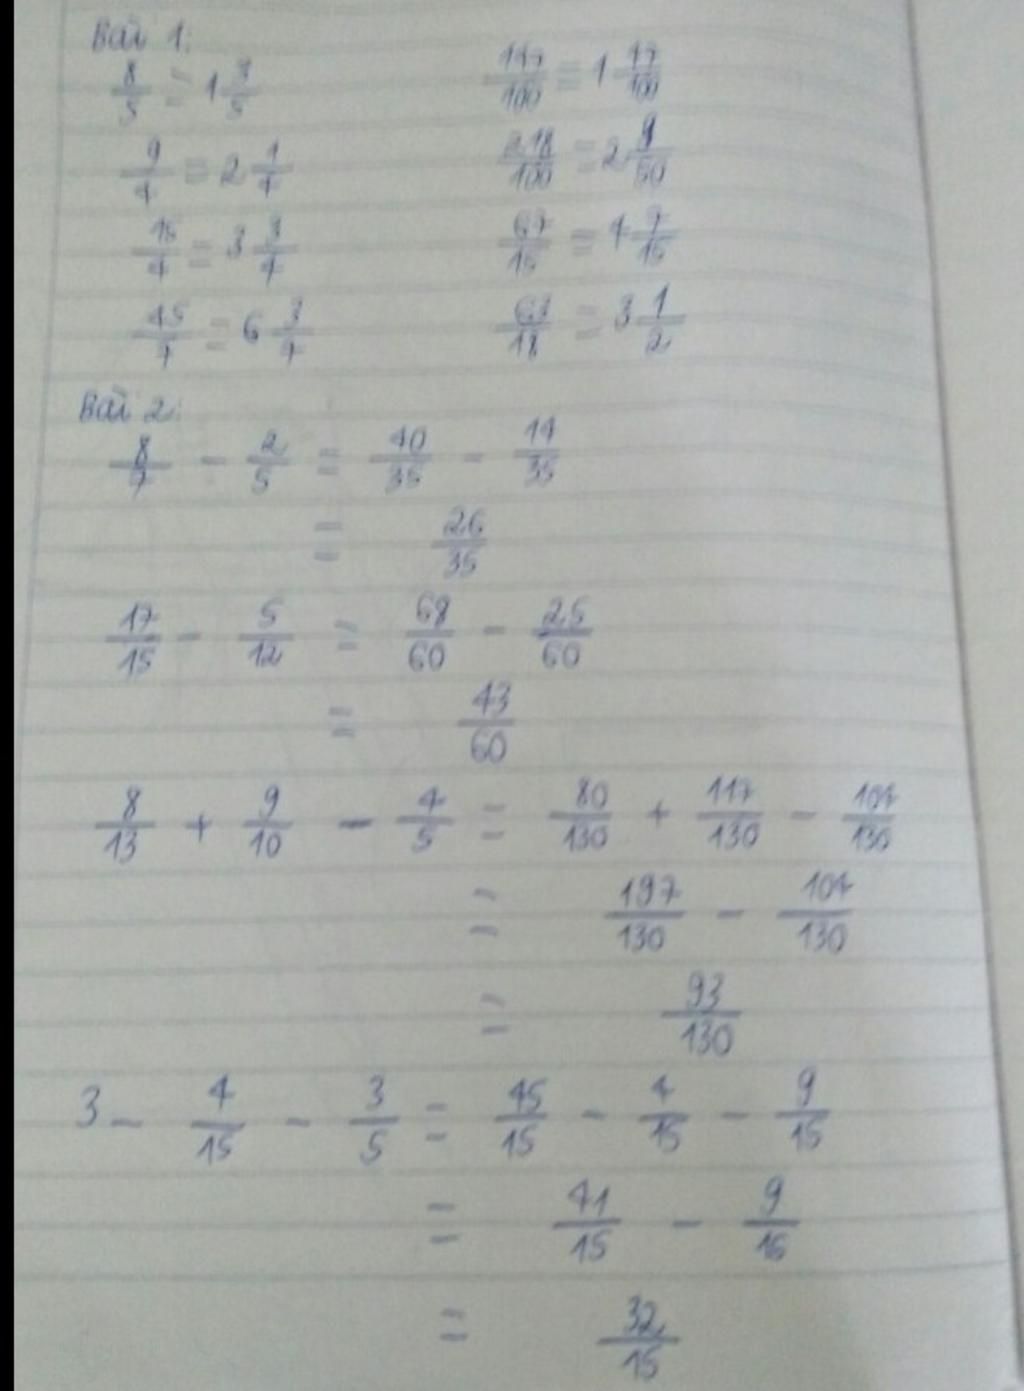 Bài 1:
8/5 = 1 3/5    117/100 = 1 17/100
9/4 = 2 1/4    218/100 = 2 9/50
15/4 = 3 3/4    67/15 = 4 7/15
45/7 = 6 3/7    63/18 = 3 1/2
Bài 2:
8/7 - 2/5 = 40/35 - 14/35
= 26/35
17/15 - 5/12 = 68/60 - 25/60
= 43/60
8/13 + 9/10 - 4/5 = 80/130 + 117/130 - 104/130
= 197/130 - 104/130
= 93/130
3 - 4/15 - 3/5 = 45/15 - 4/15 - 9/15
= 41/15 - 9/15
= 32/15